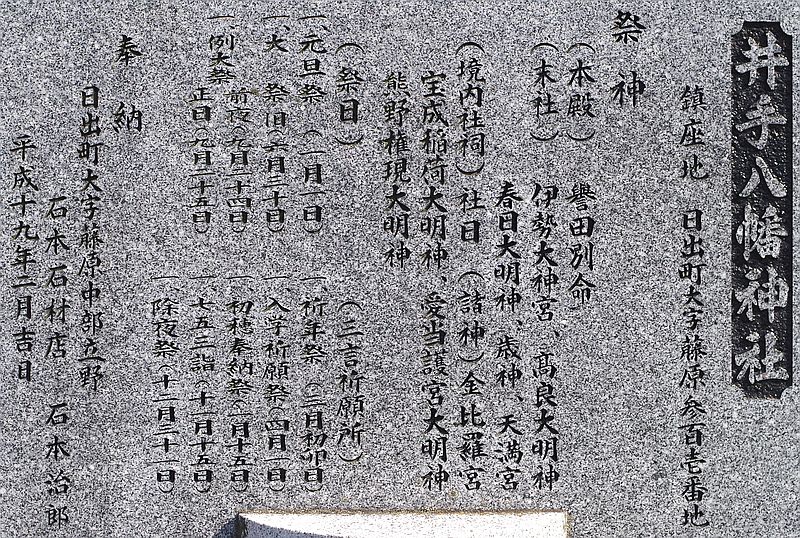 井手八幡神社
鎮座地 日出町大字藤原参百壱番地
祭神
(本殿) 譽田別命
(末社) 伊勢大神宮、高良大明神
春日大明神、歳神、天満宮
(境内社祠) 社日(諸神)金比羅宮
宝成稲荷大明神、愛当護宮大明神
熊野権現大明神
(祭日) (三言祈願所)
一、元旦祭 (一月一日) 一、祈年祭 (三月初卯日)
一、大 祭(旧六月三十日) 一、入学祈願祭(四月一日)
一 例大祭 前夜(九月二十四日) 一、初穂奉納祭(十一月十五日)
正日(九月二十五日) 一、七五三詣(十一月十五日)
一、除夜祭(十二月三十一日)
奉納
日出町大字藤原中部立野
石本石材店 石本治郎
平成十九年二月吉日